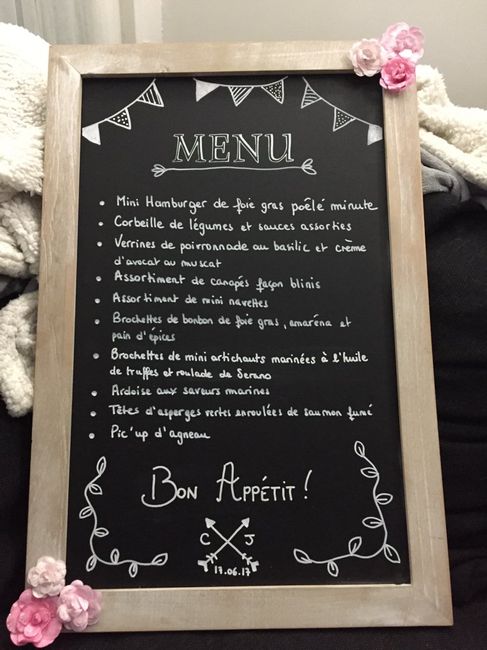 MENU
• Mini Hamburger de foie gras poêlé minute
• Corbeille de légumes et sauces assorties
• Verrines de poivronnade au basilic et crème
d'avocat au muscat
• Assortiment de canapés façon blinis
• Assortiment de mini navettes
• Brochettes de bonbon de foie gras, amaréna et
pain d'épices
• Brochettes de mini artichauts marinées à l'huile
de truffes et roulade de Serano
• Ardoise aux saveurs marines
• Têtes d'asperges vertes enroulées de saumon fumé
• Pic'up d'agneau
BON APPÉTIT !
C J
17.06.17